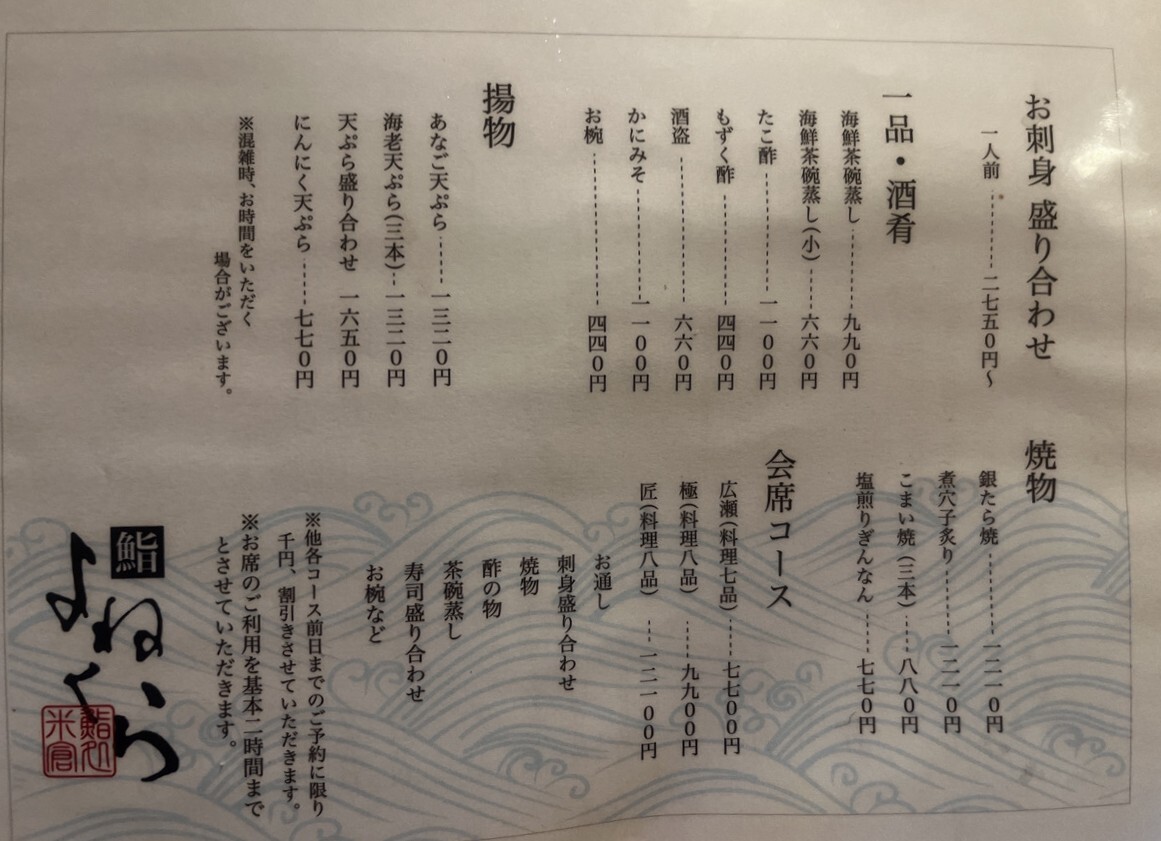 お刺身 盛り合わせ
一人前 二七五〇円〜
一品・酒肴
海鮮茶碗蒸し 九九〇円
海鮮茶碗蒸し(小) 六六〇円
たこ酢 一一〇〇円
もずく酢 四四〇円
酒盗 六六〇円
かにみそ 一一〇〇円
お椀 四四〇円
揚物
あなご天ぷら 一三二〇円
海老天ぷら(三本) 一三二〇円
天ぷら盛り合わせ 一六五〇円
にんにく天ぷら 七七〇円
※混雑時、お時間をいただく
場合がございます。
焼物
銀たら焼 一二一〇円
煮穴子炙り 一二一〇円
こまい焼(三本) 八八〇円
塩煎りぎんなん 七七〇円
会席コース
広瀬(料理七品) 七七〇〇円
極(料理八品) 九九〇〇円
匠(料理八品) 一二一〇〇円
お通し
刺身盛り合わせ
焼物
酢の物
茶碗蒸し
寿司盛り合わせ
お椀など
※他各コース前日までのご予約に限り
千円、割引きさせていただきます。
※お席のご利用を基本二時間まで
とさせていただきます。
鮨
よねくら
鮨処
米倉